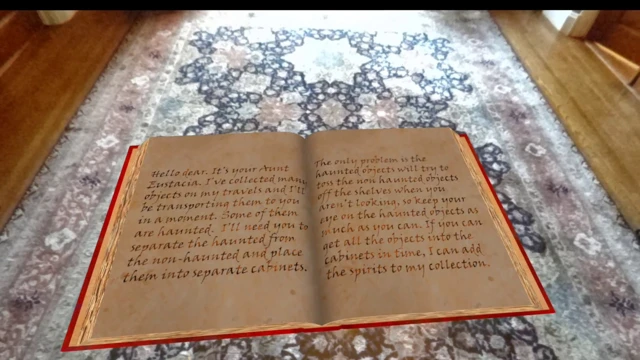 Hello dear. It's your Aunt
Eustacia. I've collected many
objects on my travels and I'll
be transporting them to you
in a moment. Some of them
are haunted. I'll need you to
separate the haunted from
the non-haunted and place
them into separate cabinets.
The only problem is the
haunted objects will try to
toss the non haunted objects
off the shelves when you
aren't looking, so keep your
eye on the haunted objects as
much as you can. If you can
get all the objects into the
cabinets in time, I can add
the spirits to my collection.